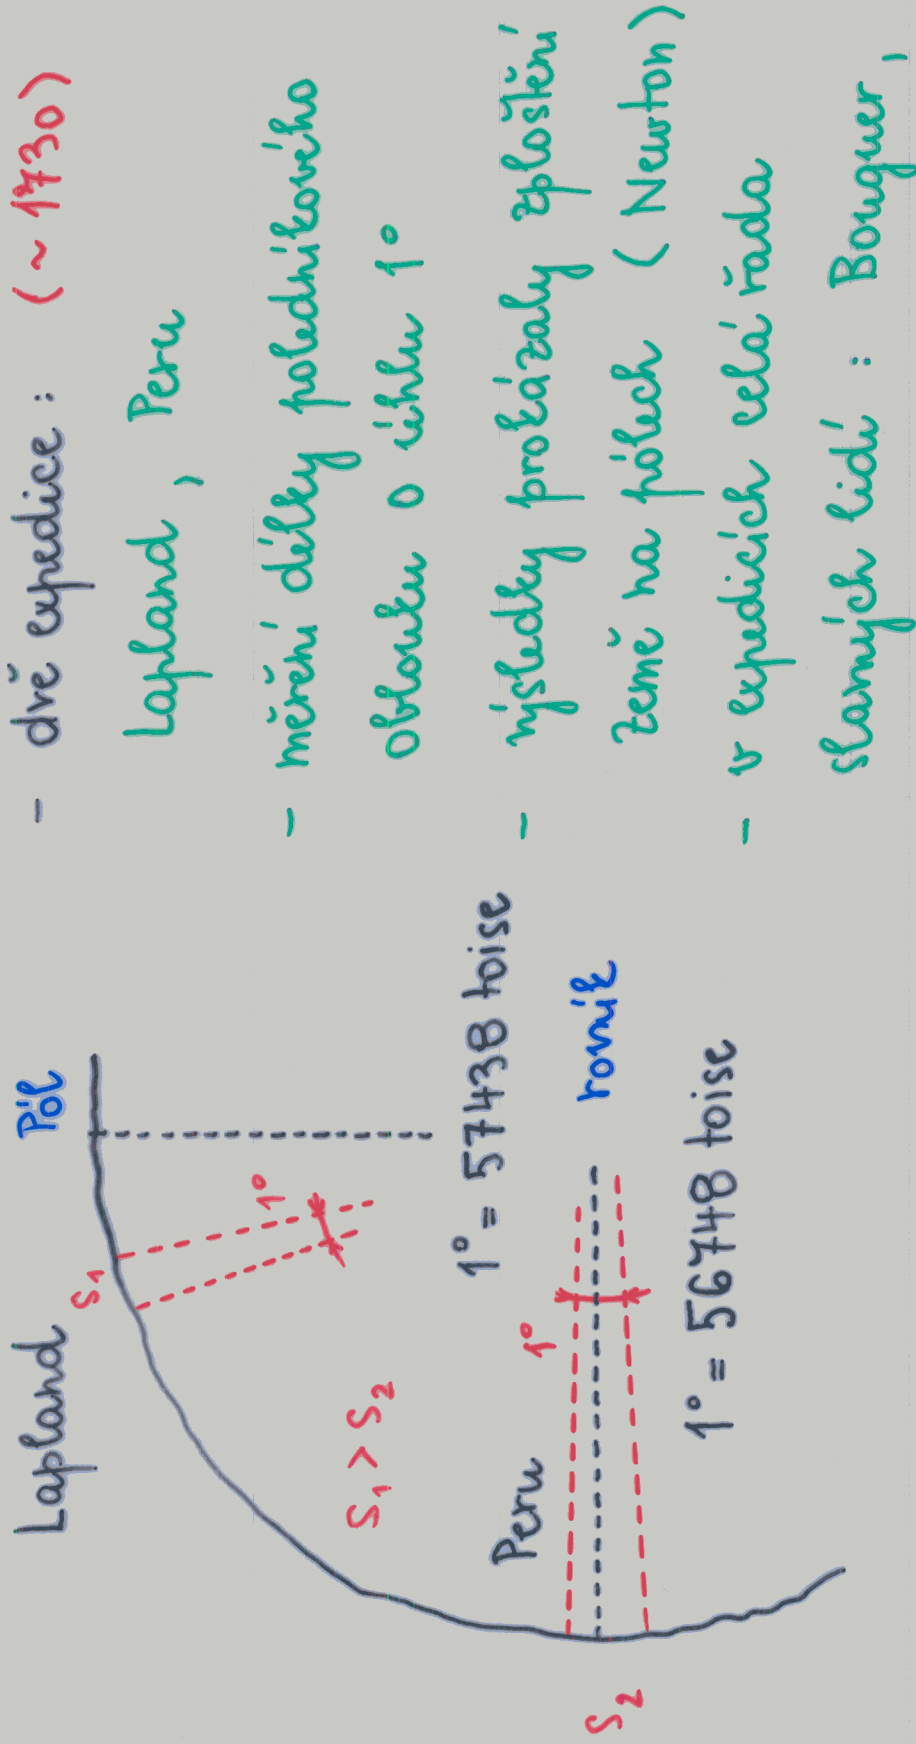 Lapland
Pól
S1
1°
S1 > S2
1° = 57438 toise
Peru
1°
rovník
S2
1° = 56748 toise
- dvě expedice : (~ 1730)
Lapland , Peru
- měření délky poledníkového
oblouku o úhlu 1°
- výsledky prokázaly zploštění
Země na pólech ( Newton )
- v expedicích celá řada
slavných lidí : Bouguer ,